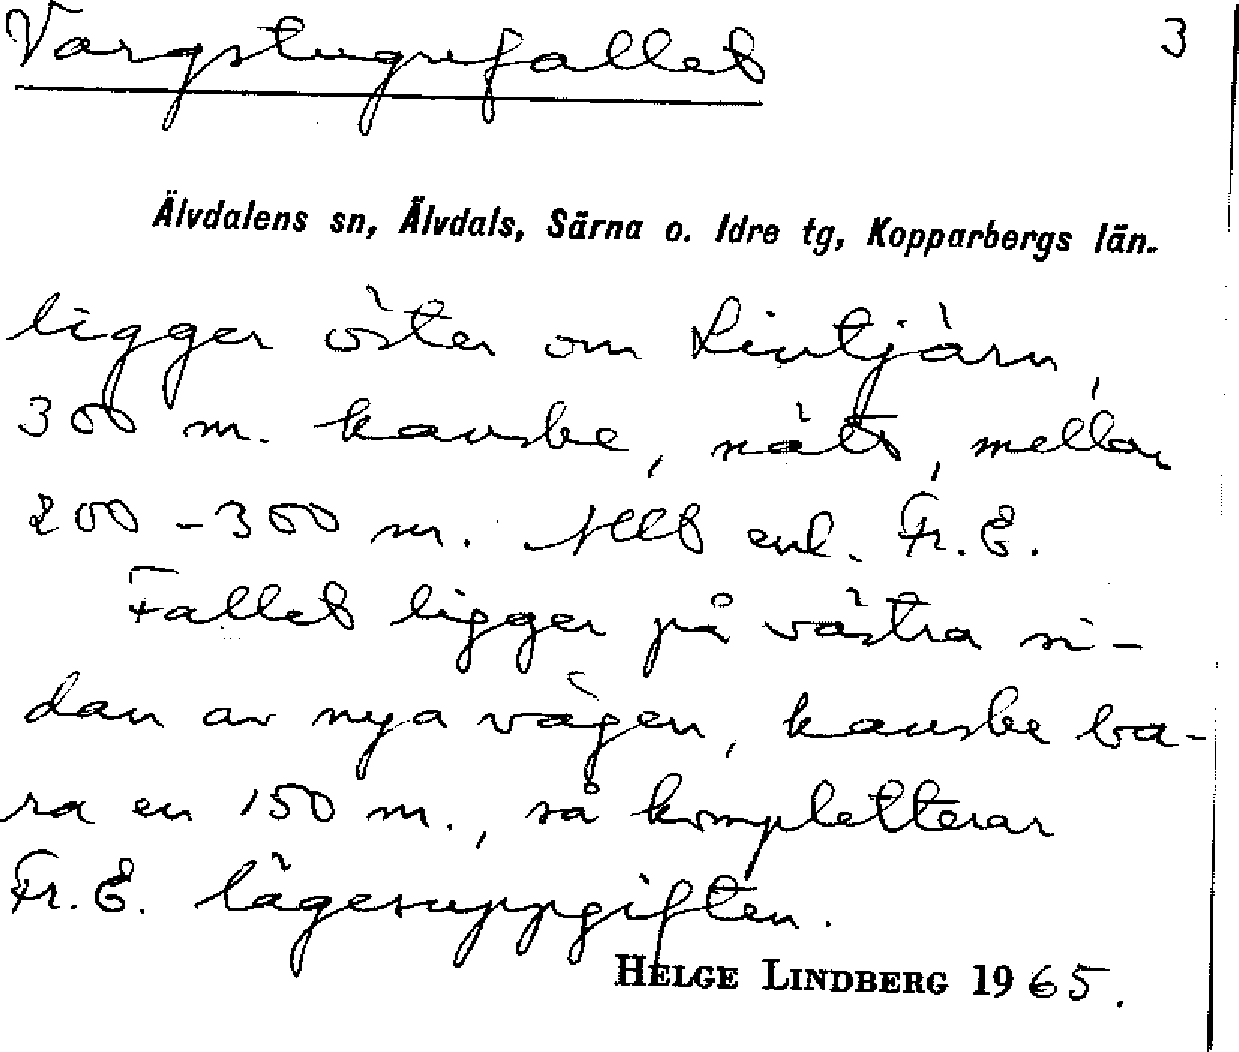 Vargstugufallet 3
Älvdalens sn, Älvdals, Särna o. Idre tg, Kopparbergs län.
ligger öster om Lintjärn,
300 m. kanske, nätt, mellan
200-300 m. Allt enl. Fr. E.
Fallet ligger på västra si-
dan av nya vägen, kanske ba-
ra en 150 m., så kompletterar
Fr. E. lägesuppgiften.
HELGE LINDBERG 1965.